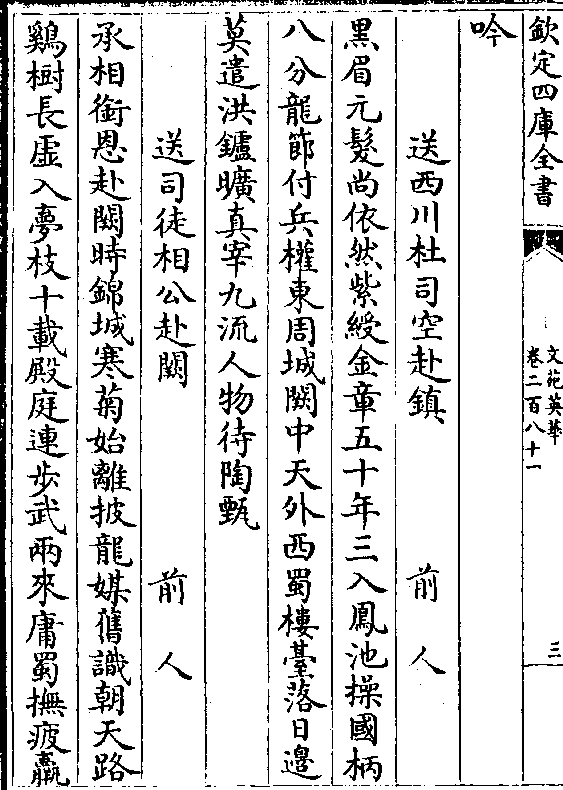 欽定四庫全書
文苑英華
卷二百八十一
三
吟
送西川杜司空赴鎮 前人
黑眉元髮尚依然紫綬金章五十年三入鳳池操國柄
八分龍節付兵權東周城闕中天外西蜀樓臺落日邊
莫遣洪鑪曠真宰九流人物待陶甄
送司徒相公赴闕 前人
承相銜恩赴闕時錦城寒菊始離披龍媒舊識朝天路
鷄樹長虛入夢枝十載殿庭連步武兩來庸蜀撫疲羸